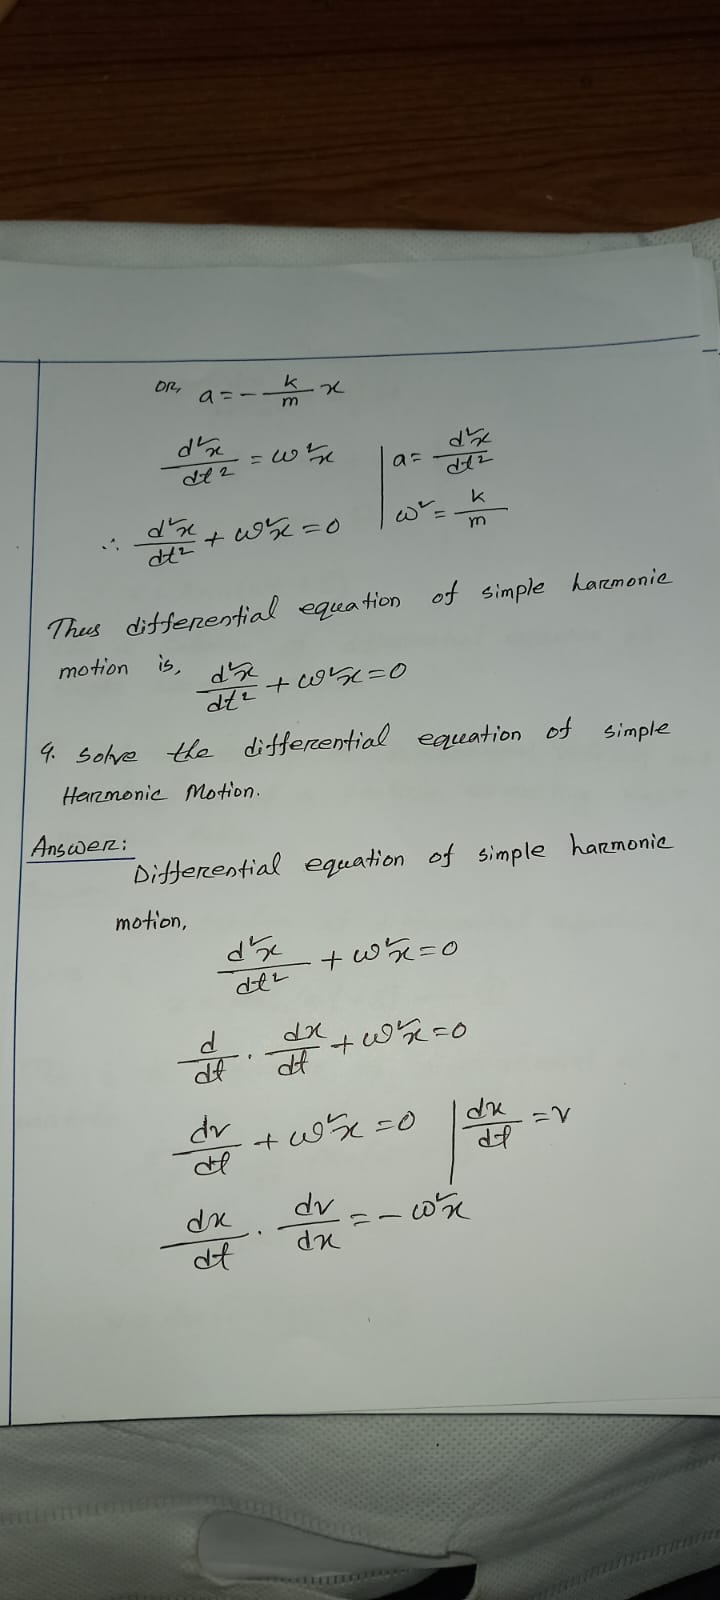 OR, a = - k/m x
d²x/dt² = ω²x | a = d²x/dt²
∴ d²x/dt² + ω²x = 0 | ω² = k/m
Thus differential equation of simple harmonic
motion is, d²x/dt² + ω²x = 0
4. Solve the differential equation of simple
Harmonic Motion.
Answer:
Differential equation of simple harmonic
motion,
d²x/dt² + ω²x = 0
d/dt . dx/dt + ω²x = 0
dv/dt + ω²x = 0 | dx/dt = v
dx/dt . dv/dx = - ω²x